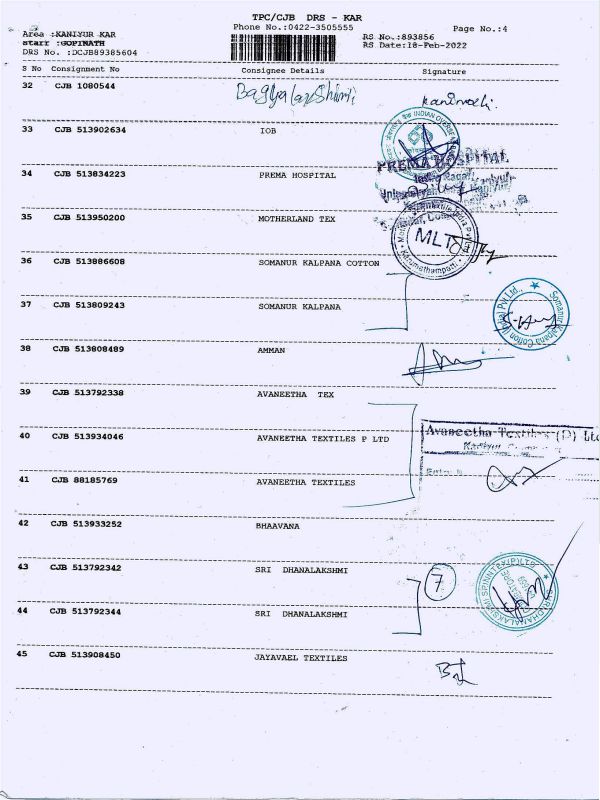 TPC/CJB DRS - KAR
Phone No.:0422-3505555
Page No.:4
Area :KANIYUR KAR
Staff :GOPINATH
DRS No. :DCJB89385604
RS No.:893856
RS Date:18-Feb-2022
S No Consignment No Consignee Details Signature
32 CJB 1080544
33 CJB 513902634 IOB
INDIAN OVERSEAS
34 CJB 513834223 PREMA HOSPITAL
PREMA HOSPITAL
35 CJB 513950200 MOTHERLAND TEX
MLT
36 CJB 513886608 SOMANUR KALPANA COTTON
37 CJB 513809243 SOMANUR KALPANA
Somanur Kalpana Cotton (India) Pvt Ltd.,
38 CJB 513808489 AMMAN
39 CJB 513792338 AVANEETHA TEX
40 CJB 513934046 AVANEETHA TEXTILES P LTD
Avaneetha Textiles (P) Ltd
41 CJB 88185769 AVANEETHA TEXTILES
42 CJB 513933252 BHAAVANA
43 CJB 513792342 SRI DHANALAKSHMI
7
44 CJB 513792344 SRI DHANALAKSHMI
45 CJB 513908450 JAYAVAEL TEXTILES